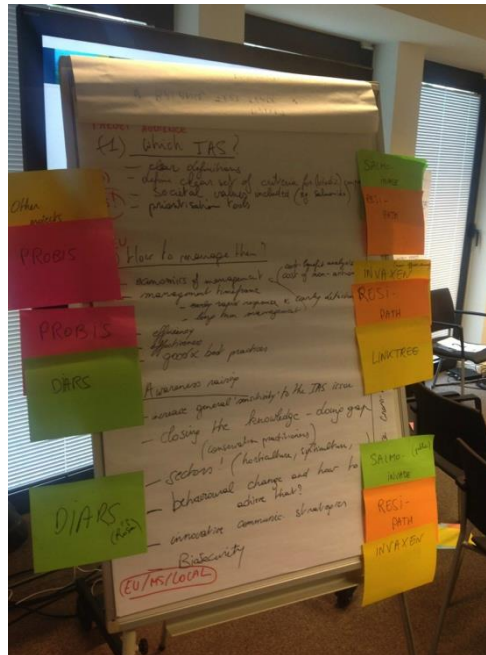 which IAS?
- clear definitions
- define clear set of criteria for
- societal values included (eg salmonids)
- prioritisation tools
How to manage them?
- economics of management
cost-benefit analysis
cost of non-action
management timeframe
early rapid response & early detection
- long term management
efficiency
effectiveness
good & bad practices
Awareness raising
- increase general sensitivity to the IAS issue
- closing the knowledge - doing gap
(conservation practitioners)
- sectors! (horticulture,
- behavioural change and how to
achive that?
- innovative communic. strategies
Biosecurity
EU/MS/LOCAL
Other
projects
PROBIS
PROBIS
DIARS
DIARS
SALMO-
INVADE
RESI-
PATH
INVAXEN
RESI-
PATH
LINKTREE
SALMO-
INVADE
RESI-
PATH
INVAXEN